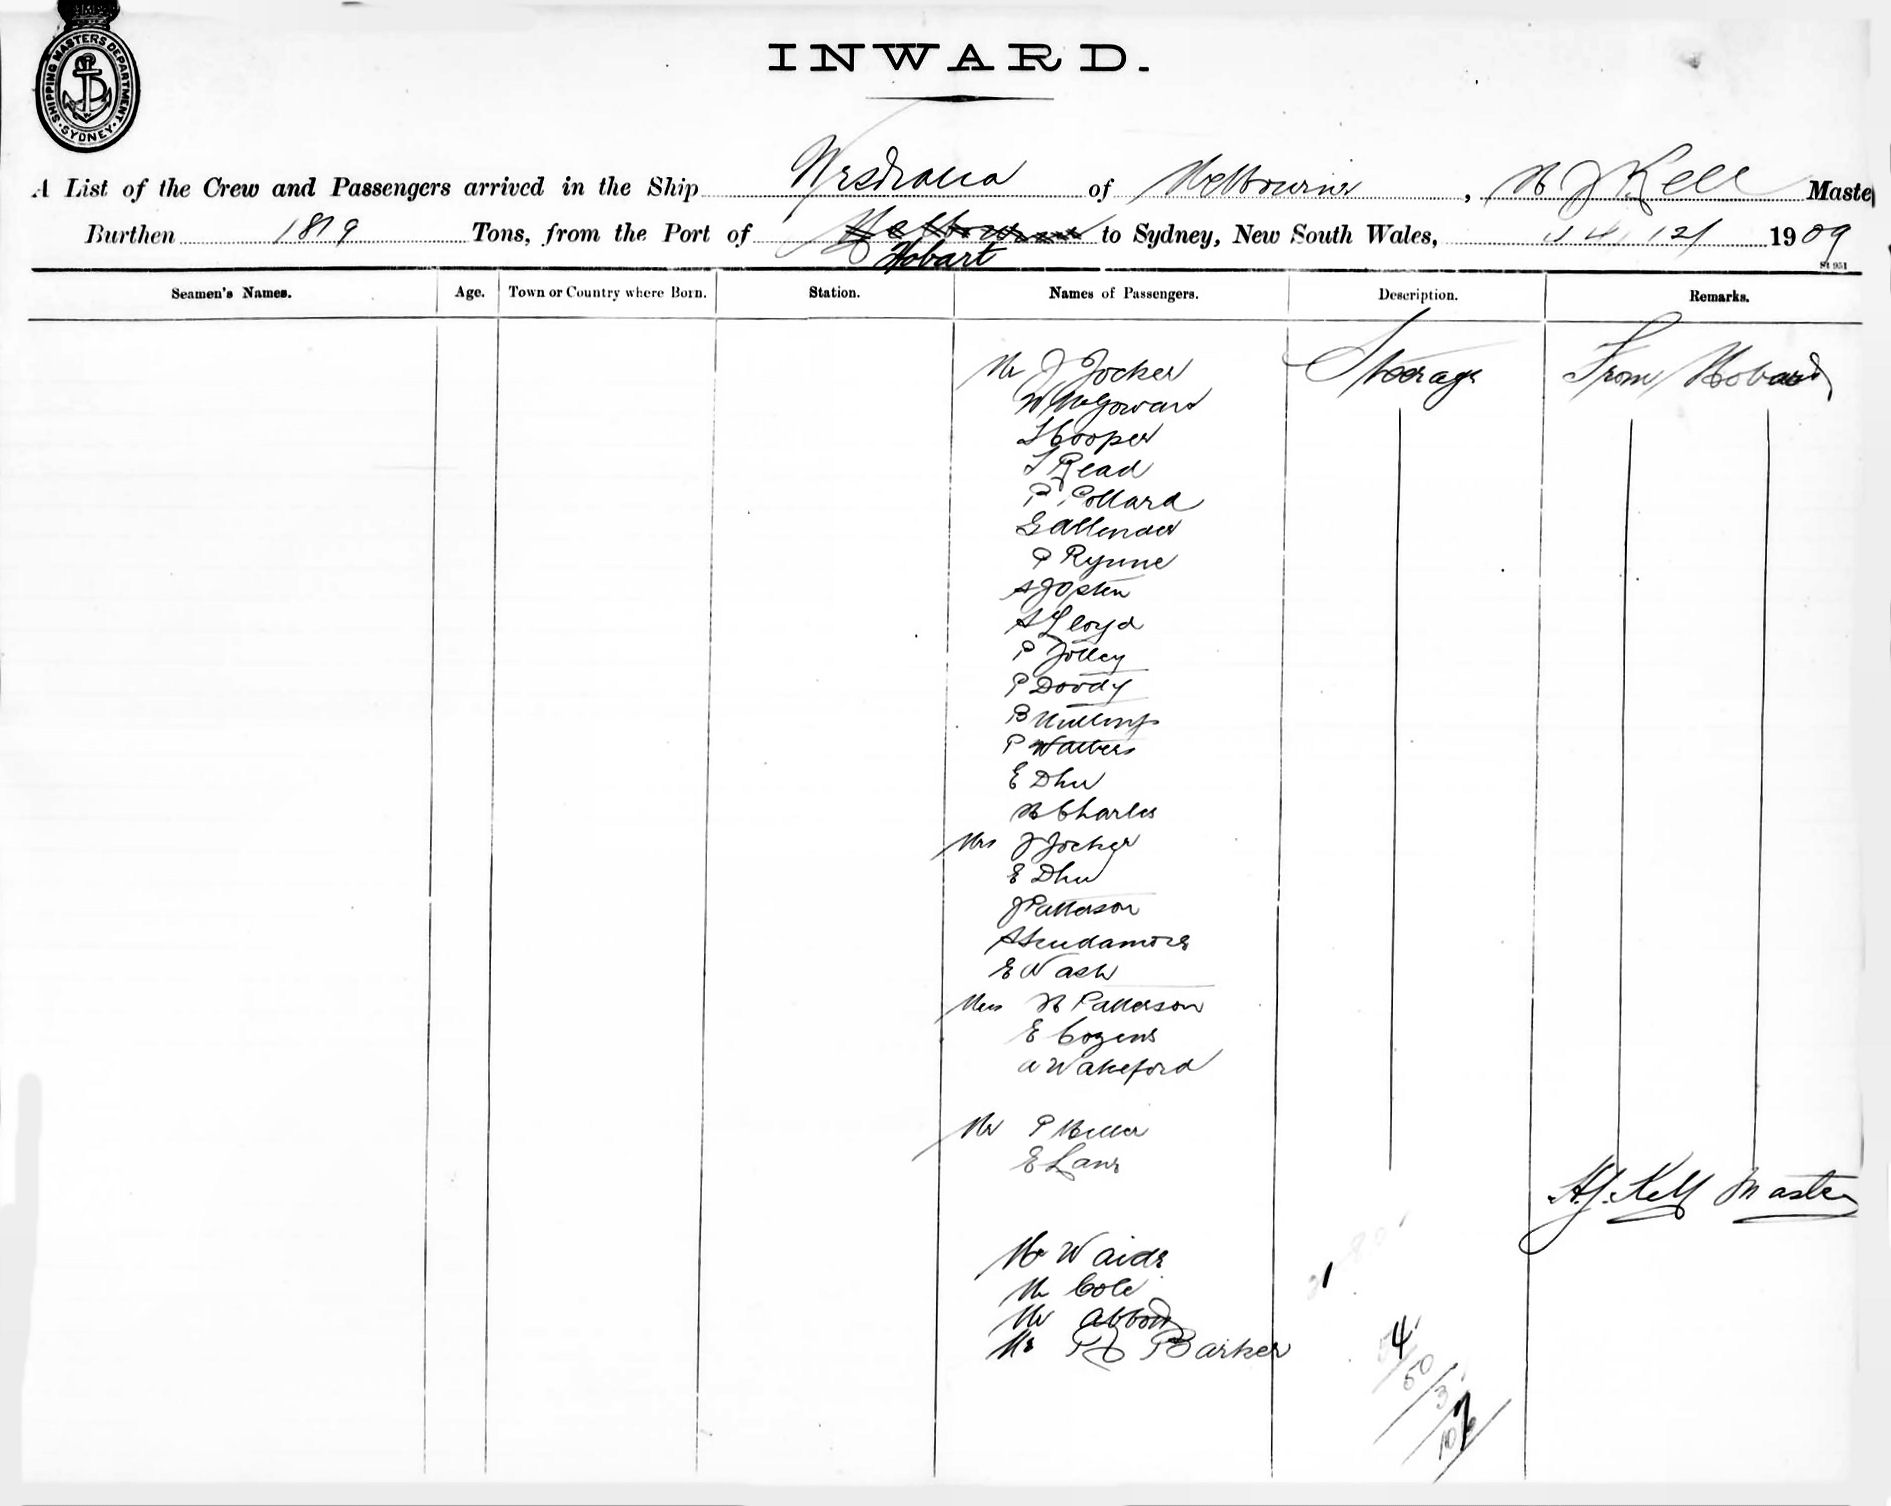 SHIPPING MASTERS DEPARTMENT · SYDNEY ·
INWARD.
A List of the Crew and Passengers arrived in the Ship Westralia of Melbourne, H J Kell Maste
Burthen 1819 Tons, from the Port of Melbourne to Sydney, New South Wales, 14/12/ 1909
Hobart
Seamen's Names. Age. Town or Country where Born. Station. Names of Passengers. Description. Remarks.
Mr J Jocker Steerage From Hobart
W McGowan
Cooper
T Read
P Pollard
G Allender
P Rynne
A J Opten
A Lloyd
P Jolley
P Doody
B
P Walters
E Dhu
H Charles
Mrs J Jocker
E Dhu
J Patterson
A Scudamore
E Nash
Miss H Patterson
E Cozens
A Wakeford
Mr P Miller
E Lane
H.J. Kell Master
Mr Waide
Mr Cole
Mr Abbott
Mr Barker